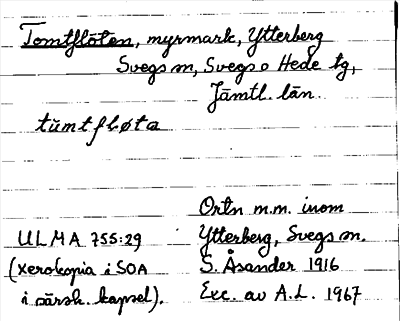 Tomtflöten, myrmark, Ytterberg
Svegs sn, Svegs o Hede tg,
Jämtl. län.
tŭmtfløta
Ortn m.m. inom
ULMA 755:29 Ytterberg, Svegs sn.
(xerokopia i SOA S. Åsander 1916
i särsk. kapsel). Exc. av A.L. 1967